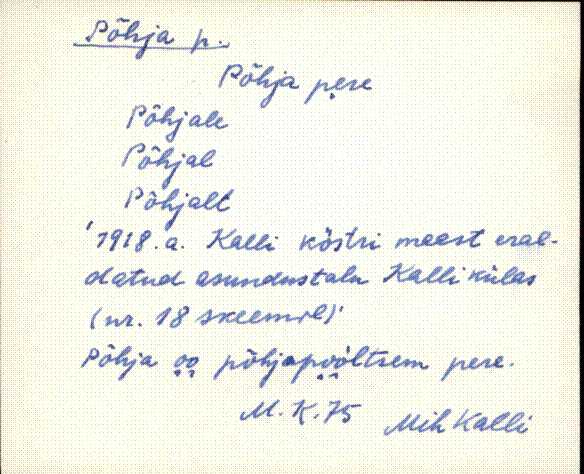 Põhja p.
Põhja pere
Põhjale
Põhjal
Põhjalt
'1918.a. Kalli köstri maast eral-
datud asundustalu Kalli külas
(nr. 18 skeemil)'
Põhja oo põhjapoòltsem pere.
M.K.75 Mih Kalli